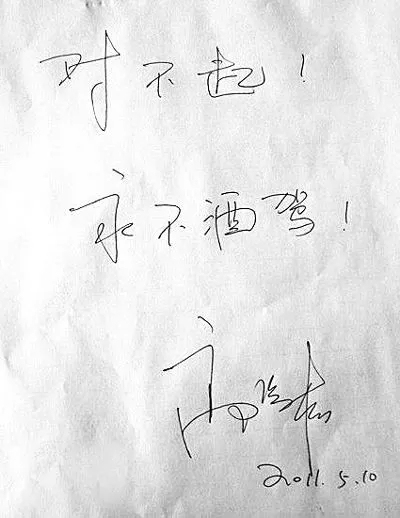 对不起！
永不酒驾！
高晓松
2011.5.10